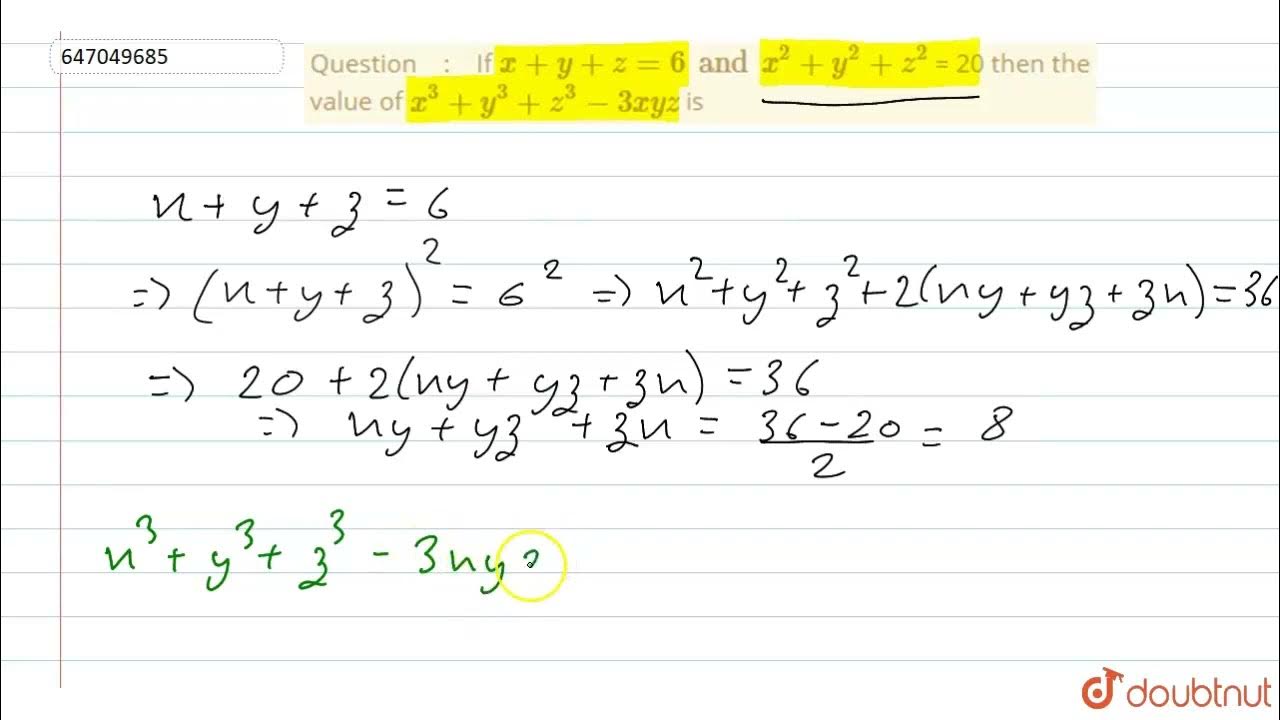 647049685
Question : If x + y + z = 6 and x² + y² + z² = 20 then the
value of x³ + y³ + z³ − 3xyz is
x + y + z = 6
=> (x + y + z)² = 6² => x² + y² + z² + 2(xy + yz + zx) = 36
=> 20 + 2(xy + yz + zx) = 36
=> xy + yz + zx = (36 − 20)/2 = 8
x³ + y³ + z³ − 3xy
doubtnut